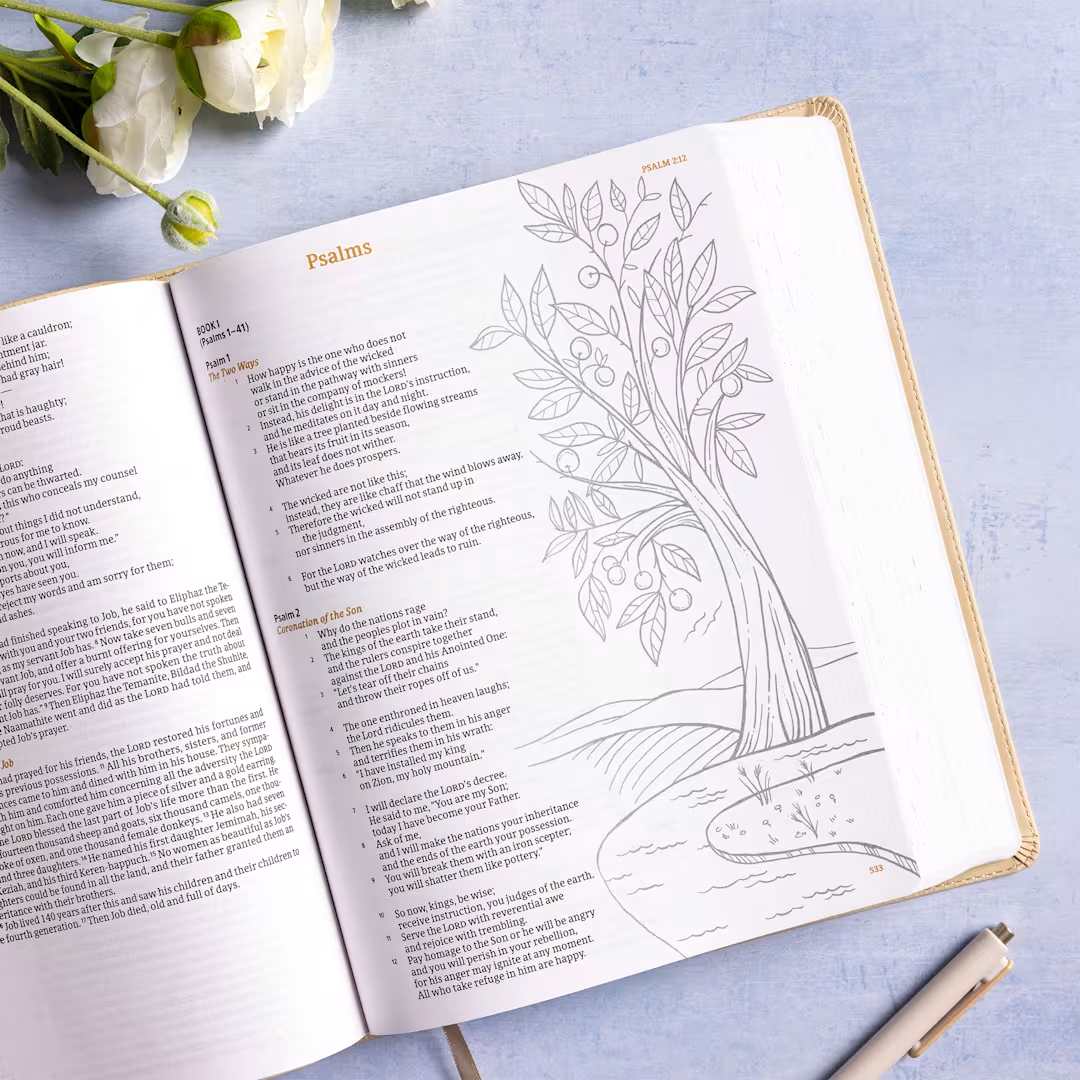 like a cauldron;
ntment jar.
ehind him;
had gray hair!
—
!
hat is haughty;
roud beasts.
LORD:
do anything
rs can be thwarted.
this who conceals my counsel
?"
out things I did not understand,
rous for me to know.
n now, and I will speak.
on you, you will inform me."
ports about you,
yes have seen you.
reject my words and am sorry for them;
nd ashes.
ad finished speaking to Job, he said to Eliphaz the Te-
with you and your two friends, for you have not spoken
as my servant Job has. 8 Now take seven bulls and seven
vant Job, and offer a burnt offering for yourselves. Then
ll pray for you. I will surely accept his prayer and not deal
r folly deserves. For you have not spoken the truth about
nt Job has." 9 Then Eliphaz the Temanite, Bildad the Shuhite,
Naamathite went and did as the LORD had told them, and
pted Job's prayer.
Job
had prayed for his friends, the LORD restored his fortunes and
s previous possessions. 11 All his brothers, sisters, and former
nces came to him and dined with him in his house. They sympa-
h him and comforted him concerning all the adversity the LORD
ght on him. Each one gave him a piece of silver and a gold earring.
e LORD blessed the last part of Job's life more than the first. He
fourteen thousand sheep and goats, six thousand camels, one thou-
oke of oxen, and one thousand female donkeys. 13 He also had seven
and three daughters. 14 He named his first daughter Jemimah, his sec-
Keziah, and his third Keren-happuch. 15 No women as beautiful as Job's
ghters could be found in all the land, and their father granted them an
eritance with their brothers.
6 Job lived 140 years after this and saw his children and their children to
e fourth generation. 17 Then Job died, old and full of days.
PSALM 2:12
Psalms
BOOK I
(Psalms 1–41)
Psalm 1
The Two Ways
1 How happy is the one who does not
walk in the advice of the wicked
or stand in the pathway with sinners
or sit in the company of mockers!
2 Instead, his delight is in the LORD's instruction,
and he meditates on it day and night.
3 He is like a tree planted beside flowing streams
that bears its fruit in its season,
and its leaf does not wither.
Whatever he does prospers.
4 The wicked are not like this;
instead, they are like chaff that the wind blows away.
5 Therefore the wicked will not stand up in
the judgment,
nor sinners in the assembly of the righteous.
6 For the LORD watches over the way of the righteous,
but the way of the wicked leads to ruin.
Psalm 2
Coronation of the Son
1 Why do the nations rage
and the peoples plot in vain?
2 The kings of the earth take their stand,
and the rulers conspire together
against the LORD and his Anointed One:
3 "Let's tear off their chains
and throw their ropes off of us."
4 The one enthroned in heaven laughs;
the Lord ridicules them.
5 Then he speaks to them in his anger
and terrifies them in his wrath:
6 "I have installed my king
on Zion, my holy mountain."
7 I will declare the LORD's decree.
He said to me, "You are my Son;
today I have become your Father.
8 Ask of me,
and I will make the nations your inheritance
and the ends of the earth your possession.
9 You will break them with an iron scepter;
you will shatter them like pottery."
10 So now, kings, be wise;
receive instruction, you judges of the earth.
11 Serve the LORD with reverential awe
and rejoice with trembling.
12 Pay homage to the Son or he will be angry
and you will perish in your rebellion,
for his anger may ignite at any moment.
All who take refuge in him are happy.
533